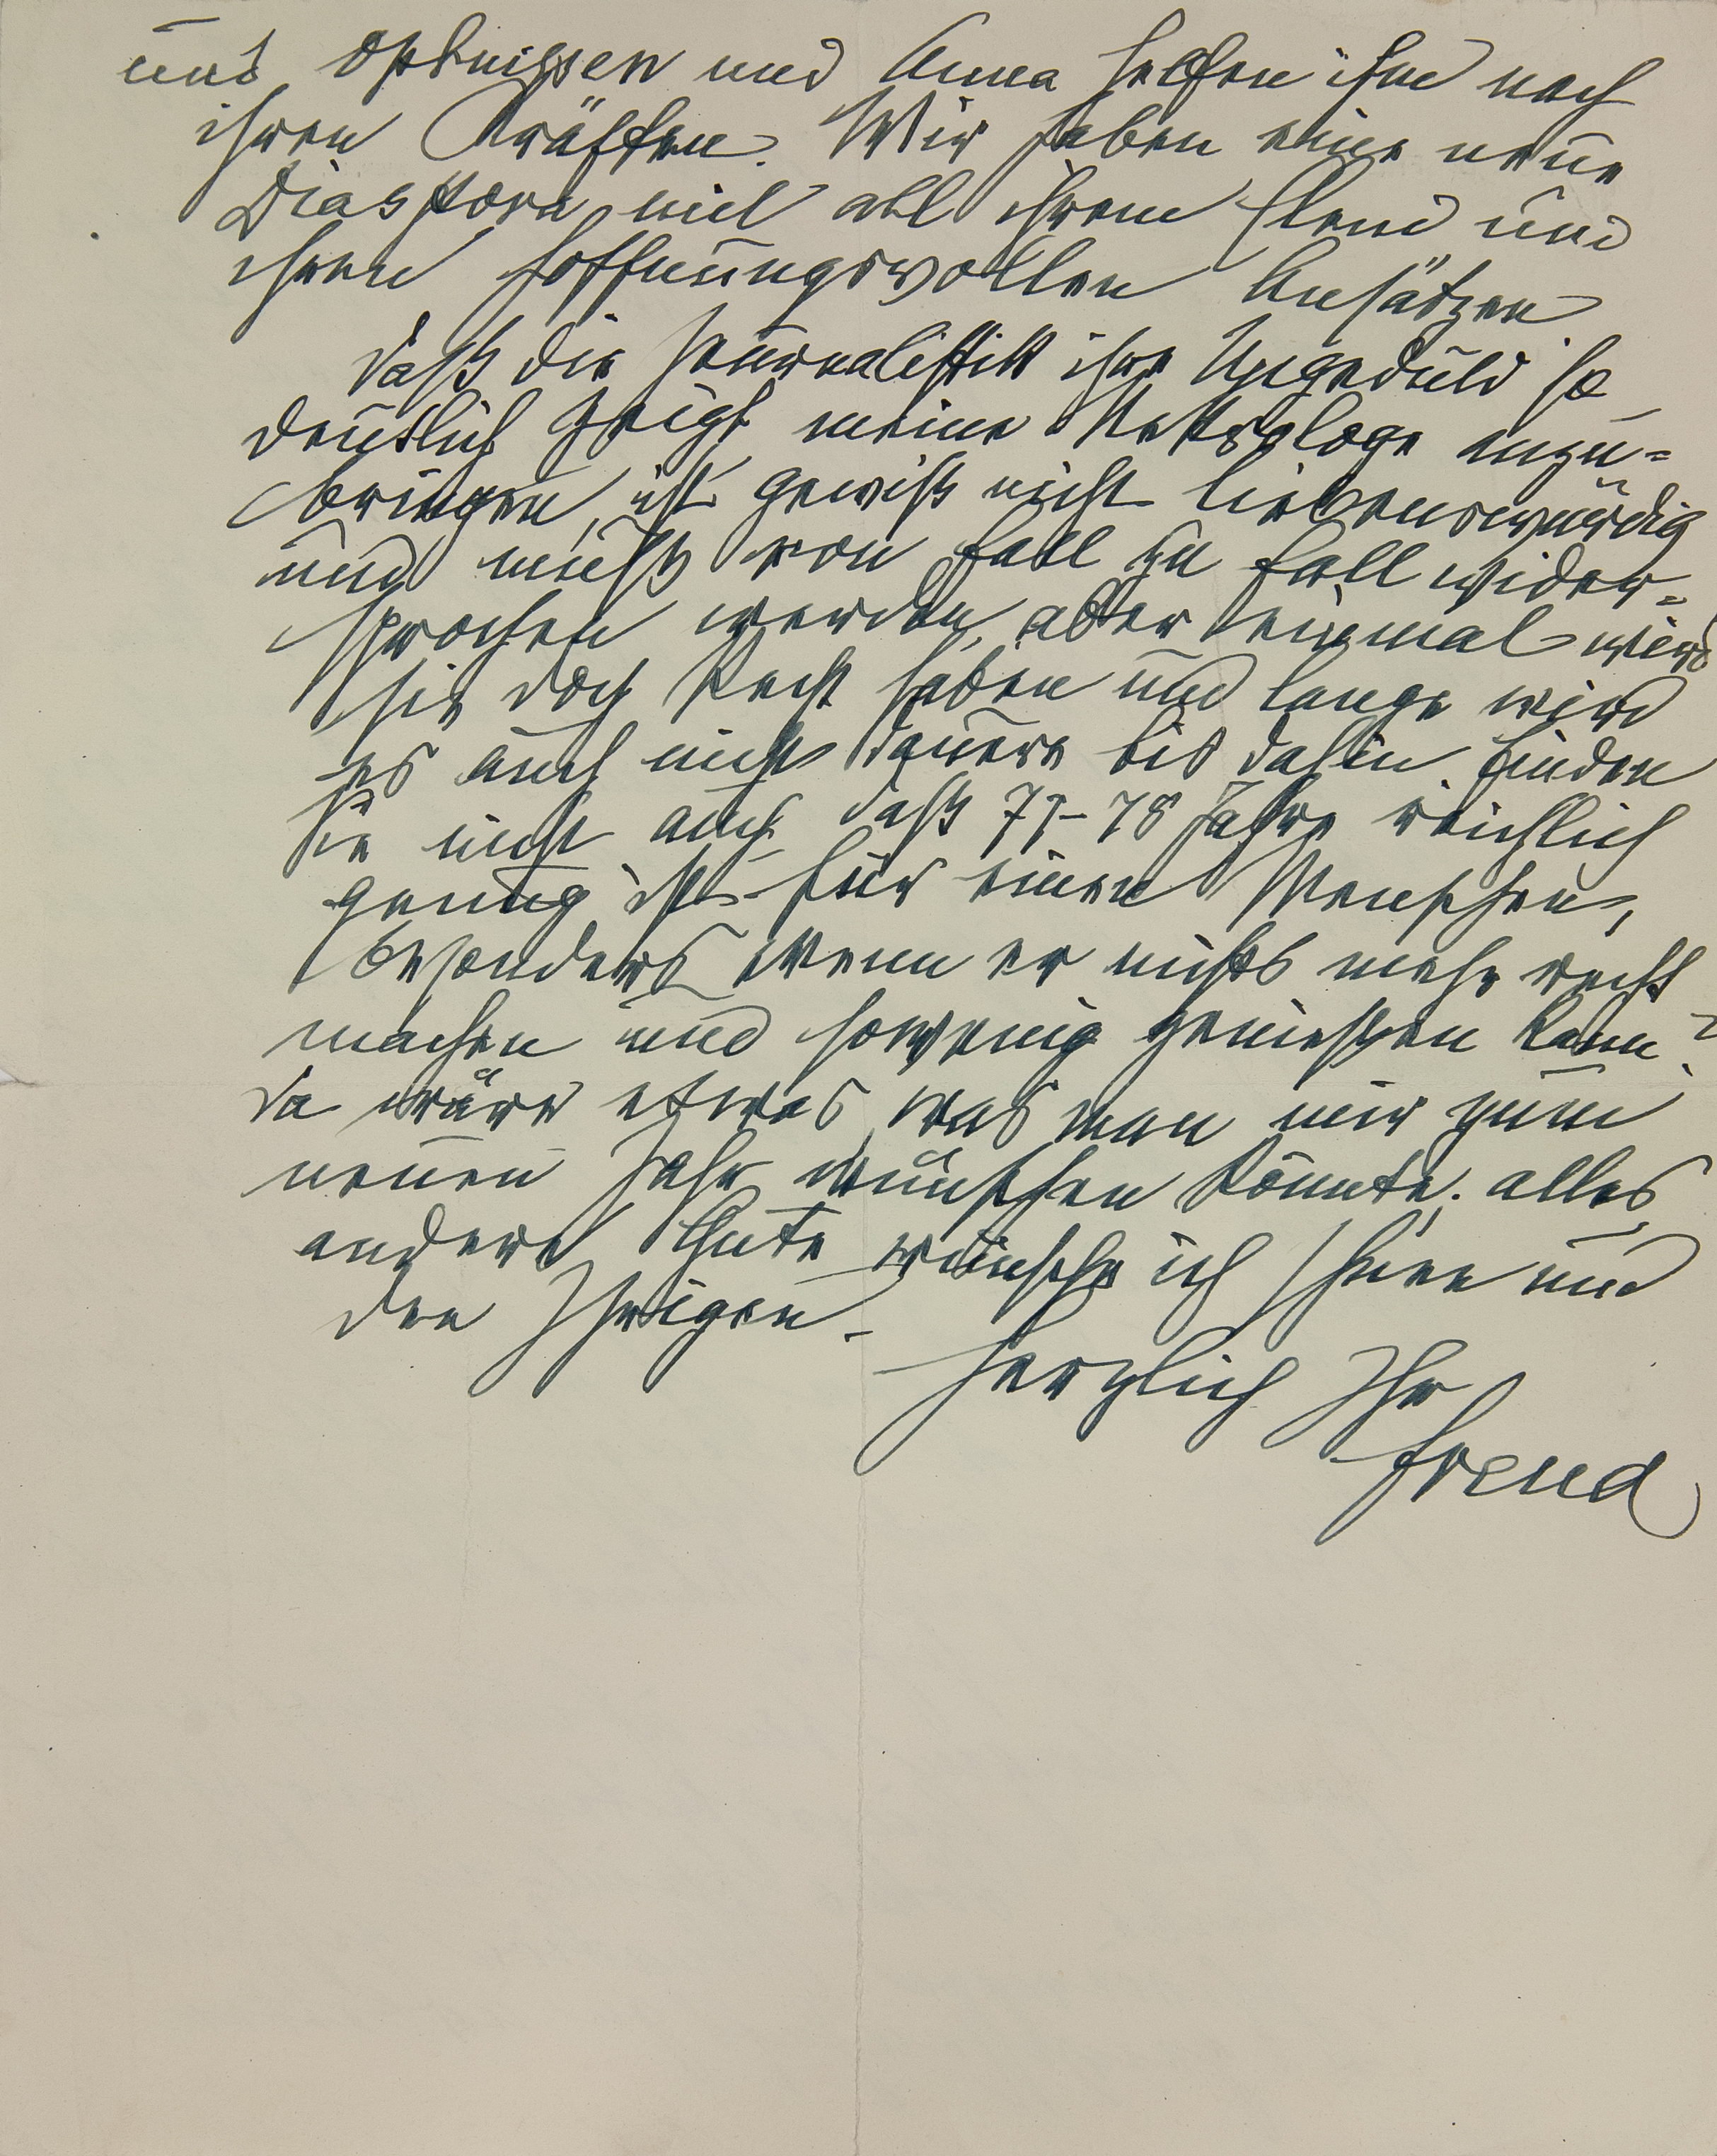 und Ophuijsen und Anna helfen ihm nach
ihren Kräften. Wir haben eine neue
Diaspora mit all ihrem Elend und
ihren hoffnungsvollen Ansätzen
Daß die Journalistik ihre Ungeduld so
deutlich zeigt meine Nekrologe anzu=
bringen, ist gewiß nicht liebenswürdig
und muß von Fall zu Fall wider=
sprochen werden, aber einmal wird
sie doch Recht haben und lange wird
es auch nicht dauern bis dahin. Finden
Sie nicht auch daß 77–78 Jahre reichlich
genug ist für einen Menschen,
besonders wenn er nichts mehr recht
machen und so wenig genießen kann?
Da wäre etwas, was man mir zum
neuen Jahr wünschen könnte; alles
andere Gute wünsche ich Ihnen und
den Ihrigen.
Herzlich Ihr
Freud